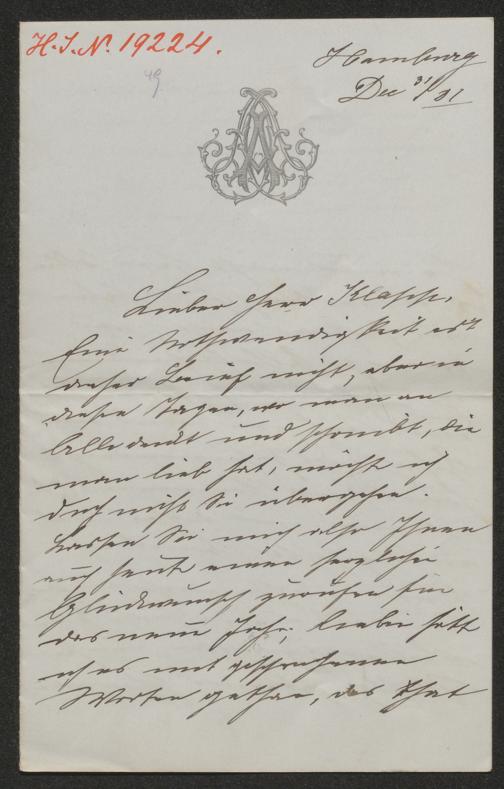 H. I. N. 19224.
49
Hamburg
Dec 31/81
Lieber Herr Klasch.
Eine Nothwendigkeit ist
dieser Brief nicht, aber in
diesen Tagen, wo man an
Alle denkt und schreibt, die
man lieb hat, möcht ich
doch nicht Sie übergehen.
Lassen Sie mich also Ihnen
auch heute einen herzlichen
Glückwunsch zurufen für
das neue Jahr; lieber hätt
ich es mit gesprochenen
Worten gethan, das that